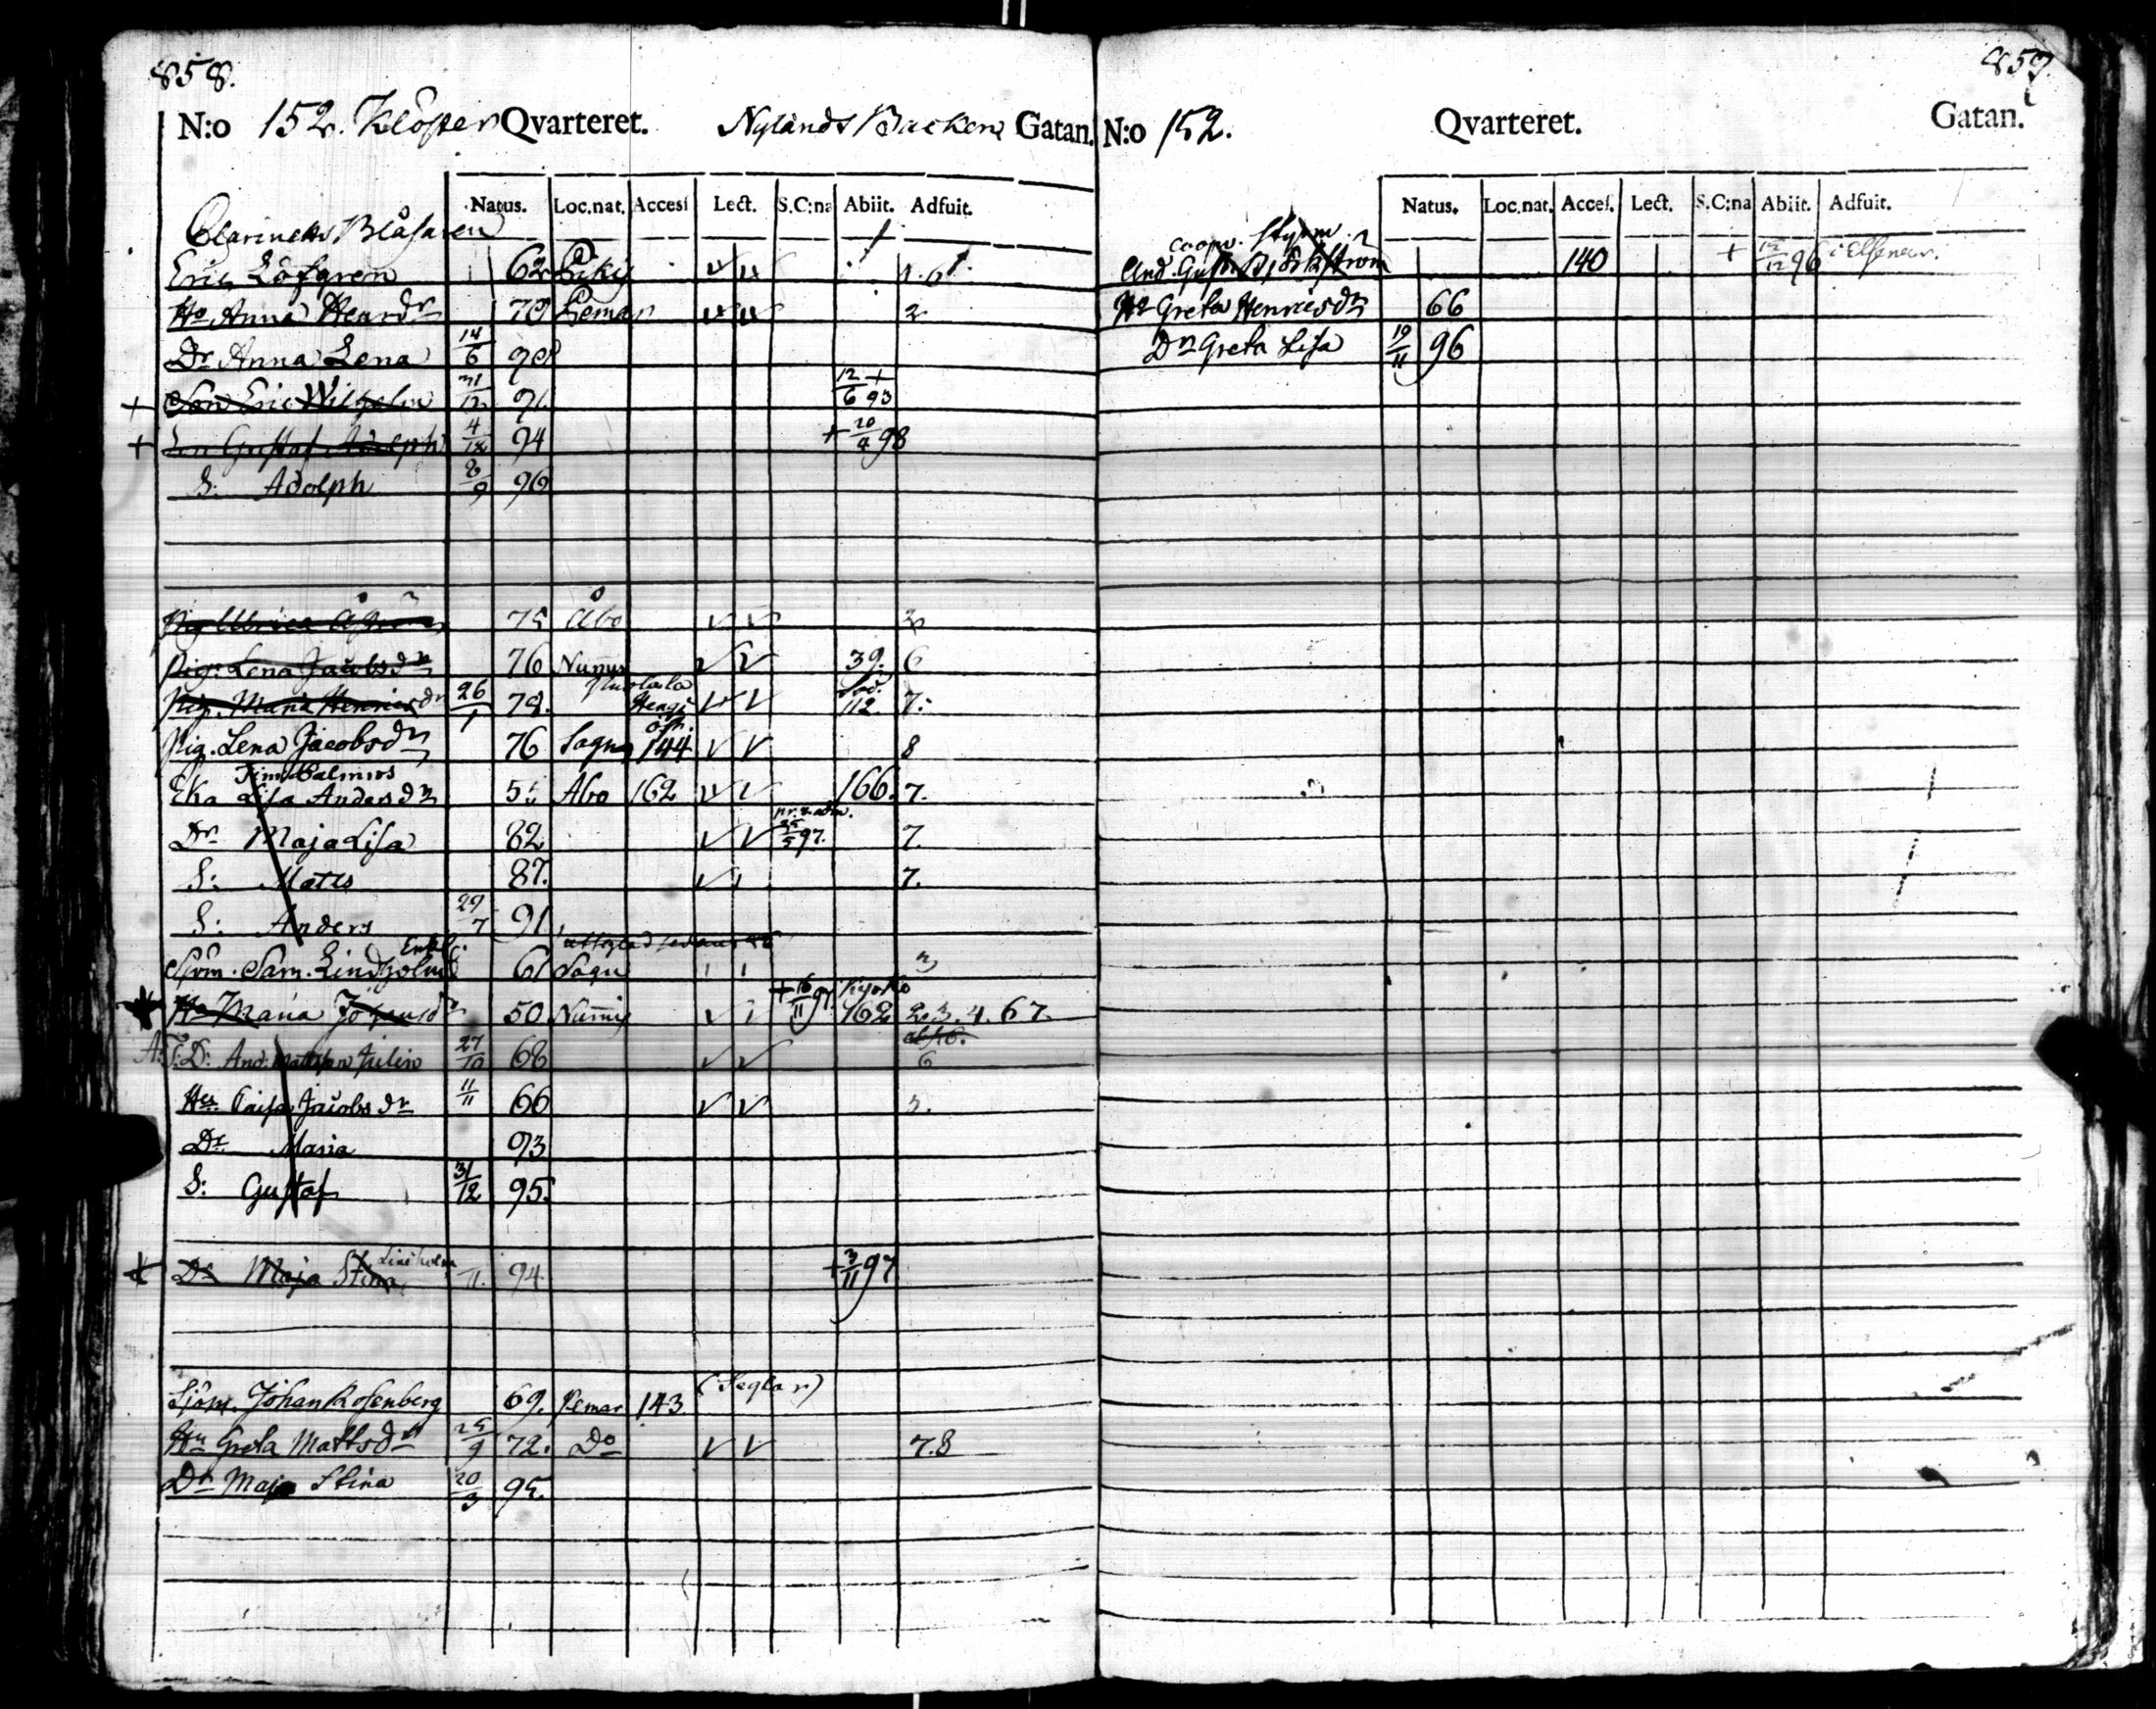 858.
N:o 152. Kloster Qvarteret. Nylands Backen Gatan.
Natus. Loc.nat. Accesf Lect. S.C:na Abiit. Adfuit.
Clarinetts Blåsaren
Eric Löfgren 62 Pikis
Ha Anna Henrdr 70 Pemar 2
Dr Anna Lena 14/6 90
+ Son Eric Wilhelm 31/12 91. 12/6 + 93
+ Son Gustaf Adolph 4/12 94 + 20/4 98
S: Adolph 8/9 96
Pig Ulrica 75 Åbo 2
Pig: Lena Jacobsdr 76 Nummis 39. 6
Pig. Maria Henricsdr 26/1 78. 112. 7.
Pig. Lena Jacobsdr 76 Sagu 144 8
Tim. Palmros
Eka Lisa Andersdr 55 Åbo 162 166. 7.
Dr Maja Lisa 82 25/5 97. 7.
S: Matts 87. 7.
S: Anders 29/7 91
Sjöm. Sam. Lindholm Enkl. 61 Sagu 3
Ha Maria Johansdr 50 Nummis + 16/11 97 Kyrko 162 2.3.4.67.
A: T: D: And: Mattsson Julin 27/10 68 6
Ha Caisa Jacobsdr 11/11 66
Dr Maria 93
S: Gustaf 31/12 95.
+ Dr Maja Stina Lindholm /11. 94 + 3/11 97
(Seglar)
Sjöm. Johan Rosenberg 69. Pemar 143
Hu Greta Mattsdr 25/9 72. Do 7.8
Dr Maja Stina 20/3 95.
859.
N:o 152. Qvarteret. Gatan.
Natus. Loc.nat. Accef. Lect. S.C:na Abiit. Adfuit.
Coopv. Styrm.
And. Gust. Björkström 140 + 12/12 96 i Elseneur.
Ha Greta Henricsdr 66
Dr Greta Lisa 19/11 96